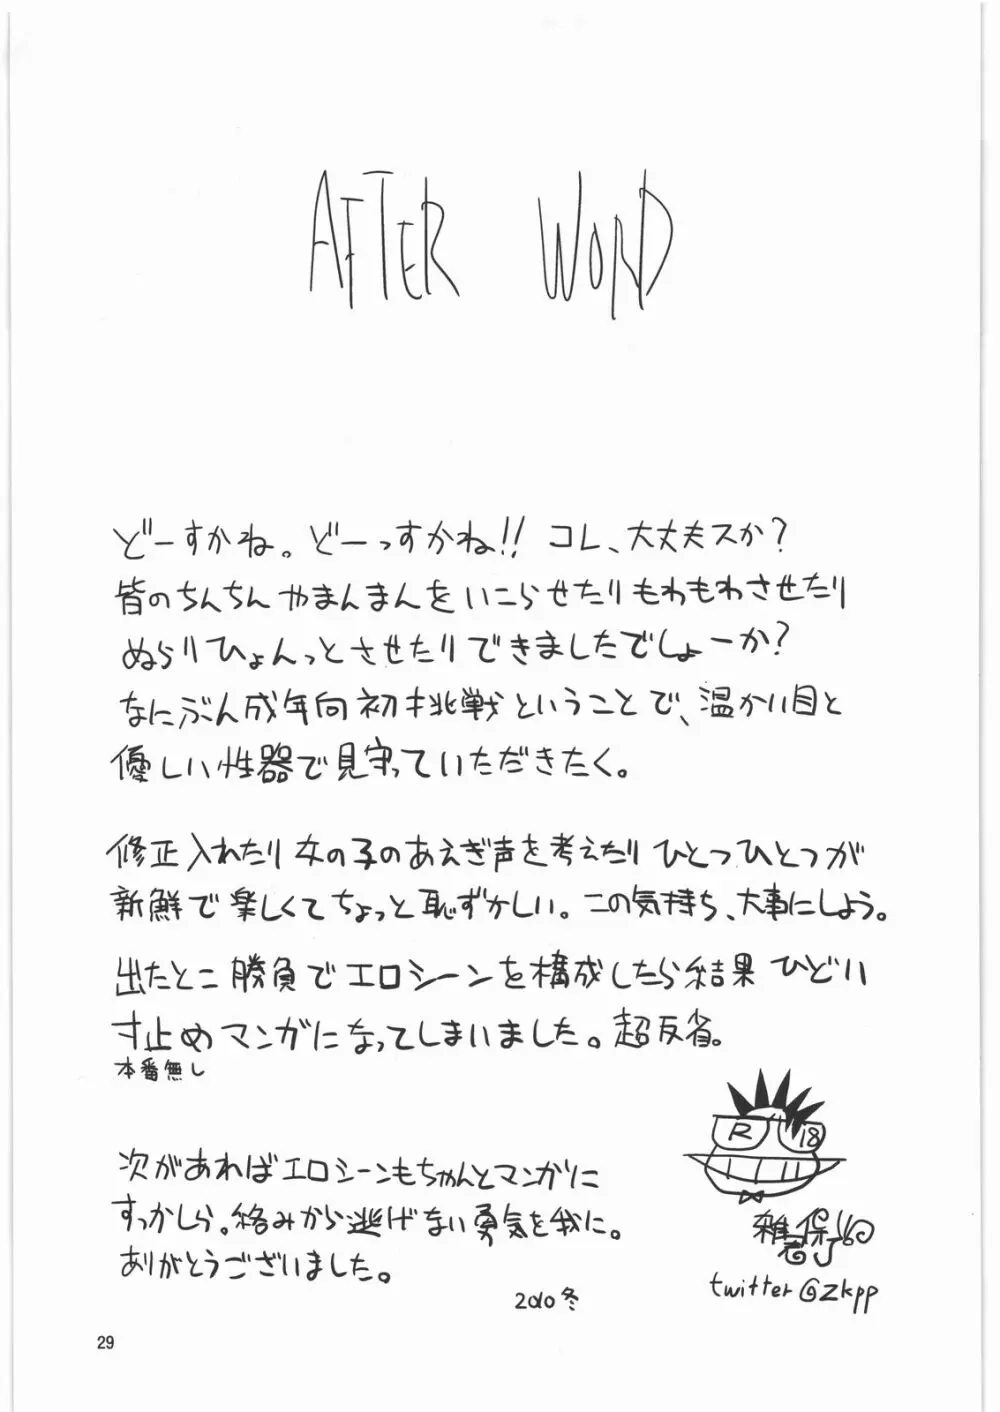 AFTER WORD
どーすかね。どーっすかね!! コレ、大丈夫スか?
皆のちんちんやまんまんをいこらせたりもわもわさせたり
ぬらりひょんっとさせたりできましたでしょーか?
なにぶん成年向初挑戦ということで、温かい目と
優しい性器で見守っていただきたく。
修正入れたり女の子のあえぎ声を考えたりひとつひとつが
新鮮で楽しくてちょっと恥ずかしい。この気持ち、大事にしよう。
出たとこ勝負でエロシーンを構成したら結果ひどい
寸止めマンガになってしまいました。超反省。
本番無し
次があればエロシーンもちゃんとマンガりに
すっかしら。絡みから逃げない勇気を我に。
ありがとうございました。
2010冬
R 18
雑君保プ
twitter@zkpp
29